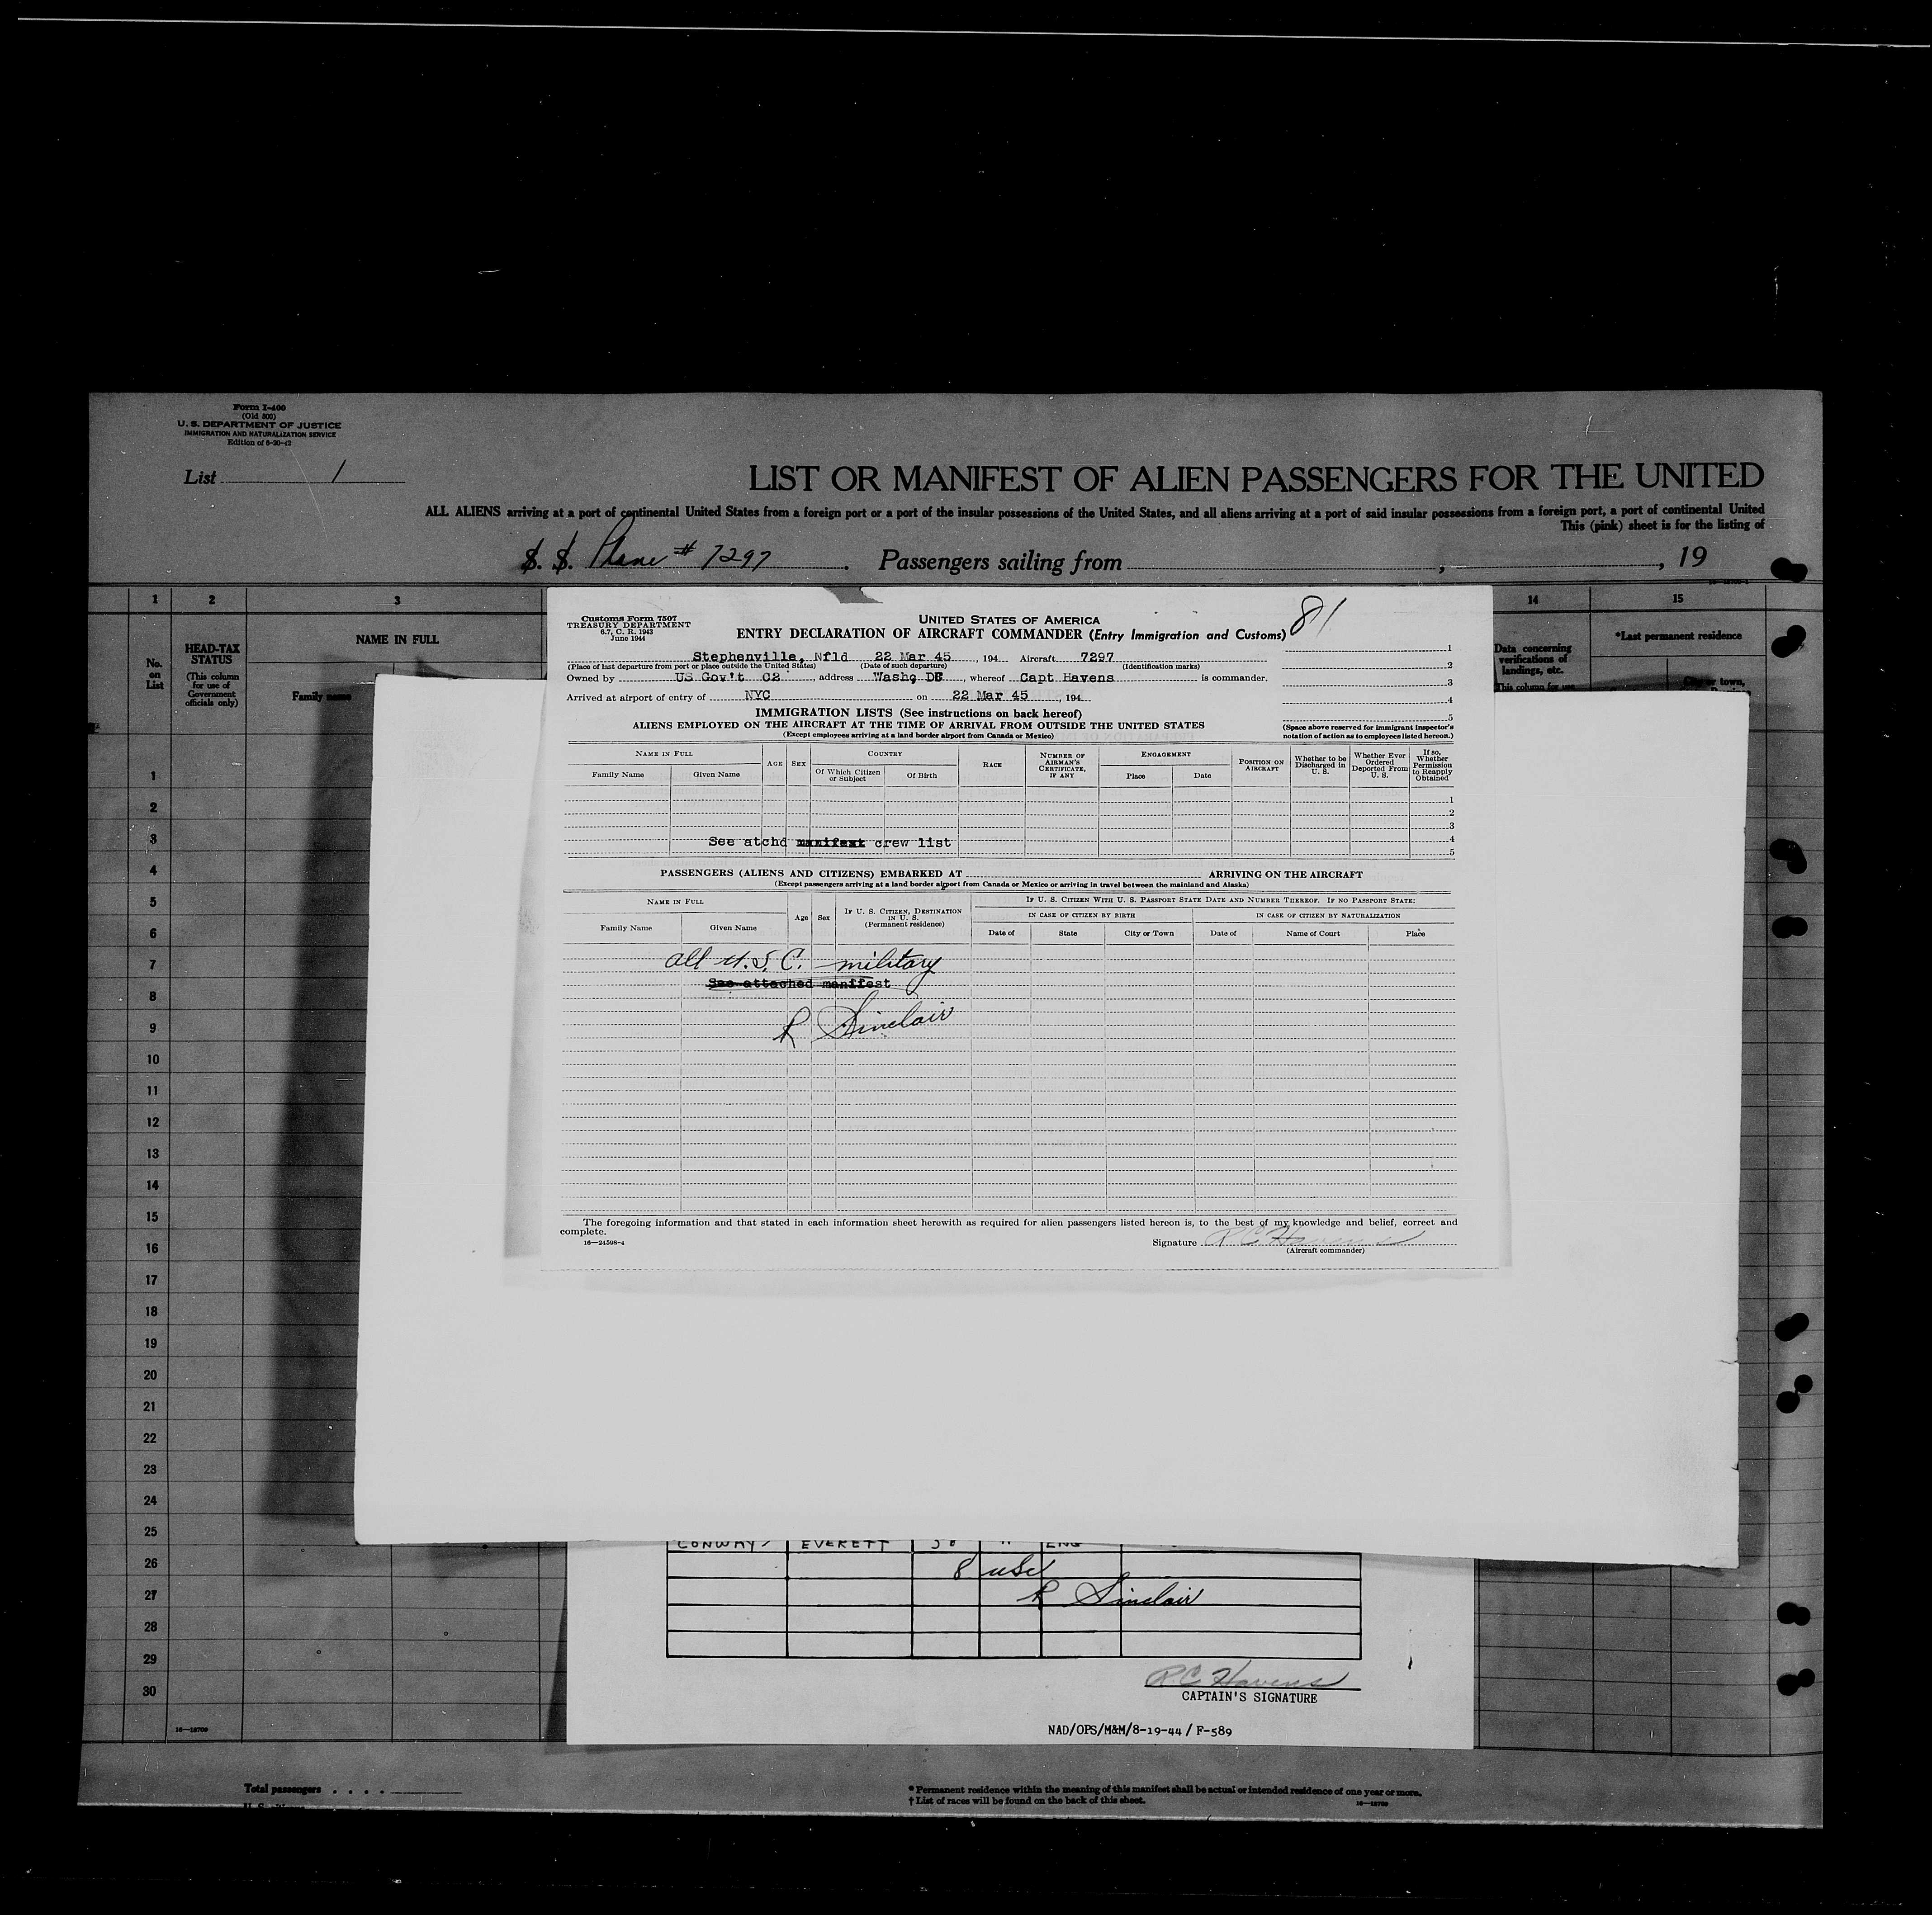 Form I-400
(Old 500)
U. S. DEPARTMENT OF JUSTICE
IMMIGRATION AND NATURALIZATION SERVICE
Edition of 6-20-42
List 1
LIST OR MANIFEST OF ALIEN PASSENGERS FOR THE UNITED
ALL ALIENS arriving at a port of continental United States from a foreign port or a port of the insular possessions of the United States, and all aliens arriving at a port of said insular possessions from a foreign port, a port of continental United
This (pink) sheet is for the listing of
S. S. Plane # 7297 . Passengers sailing from , , 19
1 2 3 14 15
No. on List
HEAD-TAX STATUS
(This column for use of Government officials only)
NAME IN FULL
Family name
Data concerning verifications of landings, etc.
*Last permanent residence
Customs Form 7507
TREASURY DEPARTMENT
6.7, C. R. 1943
June 1944
UNITED STATES OF AMERICA
81
ENTRY DECLARATION OF AIRCRAFT COMMANDER (Entry Immigration and Customs)
Stephenville, Nfld 22 Mar 45, 194 Aircraft 7297
(Place of last departure from port or place outside the United States) (Date of such departure) (Identification marks)
Owned by US Gov't C2, address Wash, whereof Capt Havens is commander.
Arrived at airport of entry of NYC on 22 Mar 45, 194
1
2
3
4
5
(Space above reserved for immigrant inspector's notation of action as to employees listed hereon.)
IMMIGRATION LISTS (See instructions on back hereof)
ALIENS EMPLOYED ON THE AIRCRAFT AT THE TIME OF ARRIVAL FROM OUTSIDE THE UNITED STATES
(Except employees arriving at a land border airport from Canada or Mexico)
NAME IN FULL
Family Name Given Name
AGE SEX
COUNTRY
Of Which Citizen or Subject Of Birth
RACE
NUMBER OF AIRMAN'S CERTIFICATE, IF ANY
ENGAGEMENT
Place Date
POSITION ON AIRCRAFT
Whether to be Discharged in U. S.
Whether Ever Ordered Deported From U. S.
If so, Whether Permission to Reapply Obtained
1
2
3
4
5
See atchd manifest crew list
PASSENGERS (ALIENS AND CITIZENS) EMBARKED AT ARRIVING ON THE AIRCRAFT
(Except passengers arriving at a land border airport from Canada or Mexico or arriving in travel between the mainland and Alaska)
NAME IN FULL
Family Name Given Name
Age Sex
IF U. S. CITIZEN, DESTINATION IN U. S.
(Permanent residence)
IF U. S. CITIZEN WITH U. S. PASSPORT STATE DATE AND NUMBER THEREOF. IF NO PASSPORT STATE:
IN CASE OF CITIZEN BY BIRTH IN CASE OF CITIZEN BY NATURALIZATION
Date of State City or Town Date of Name of Court Place
all U.S.C. - military
See attached manifest
R Sinclair
The foregoing information and that stated in each information sheet herewith as required for alien passengers listed hereon is, to the best of my knowledge and belief, correct and
complete.
16—24598-4
Signature R C Havens
(Aircraft commander)
1
2
3
4
5
6
7
8
9
10
11
12
13
14
15
16
17
18
19
20
21
22
23
24
25
26
27
28
29
30
CONWAY EVERETT 38 " ENG
8 usc
R Sinclair
R C Havens
CAPTAIN'S SIGNATURE
NAD/OPS/M&M/8-19-44 / F-589
16—18709
Total passengers . . . .
* Permanent residence within the meaning of this manifest shall be actual or intended residence of one year or more.
† List of races will be found on the back of this sheet.
16—18709